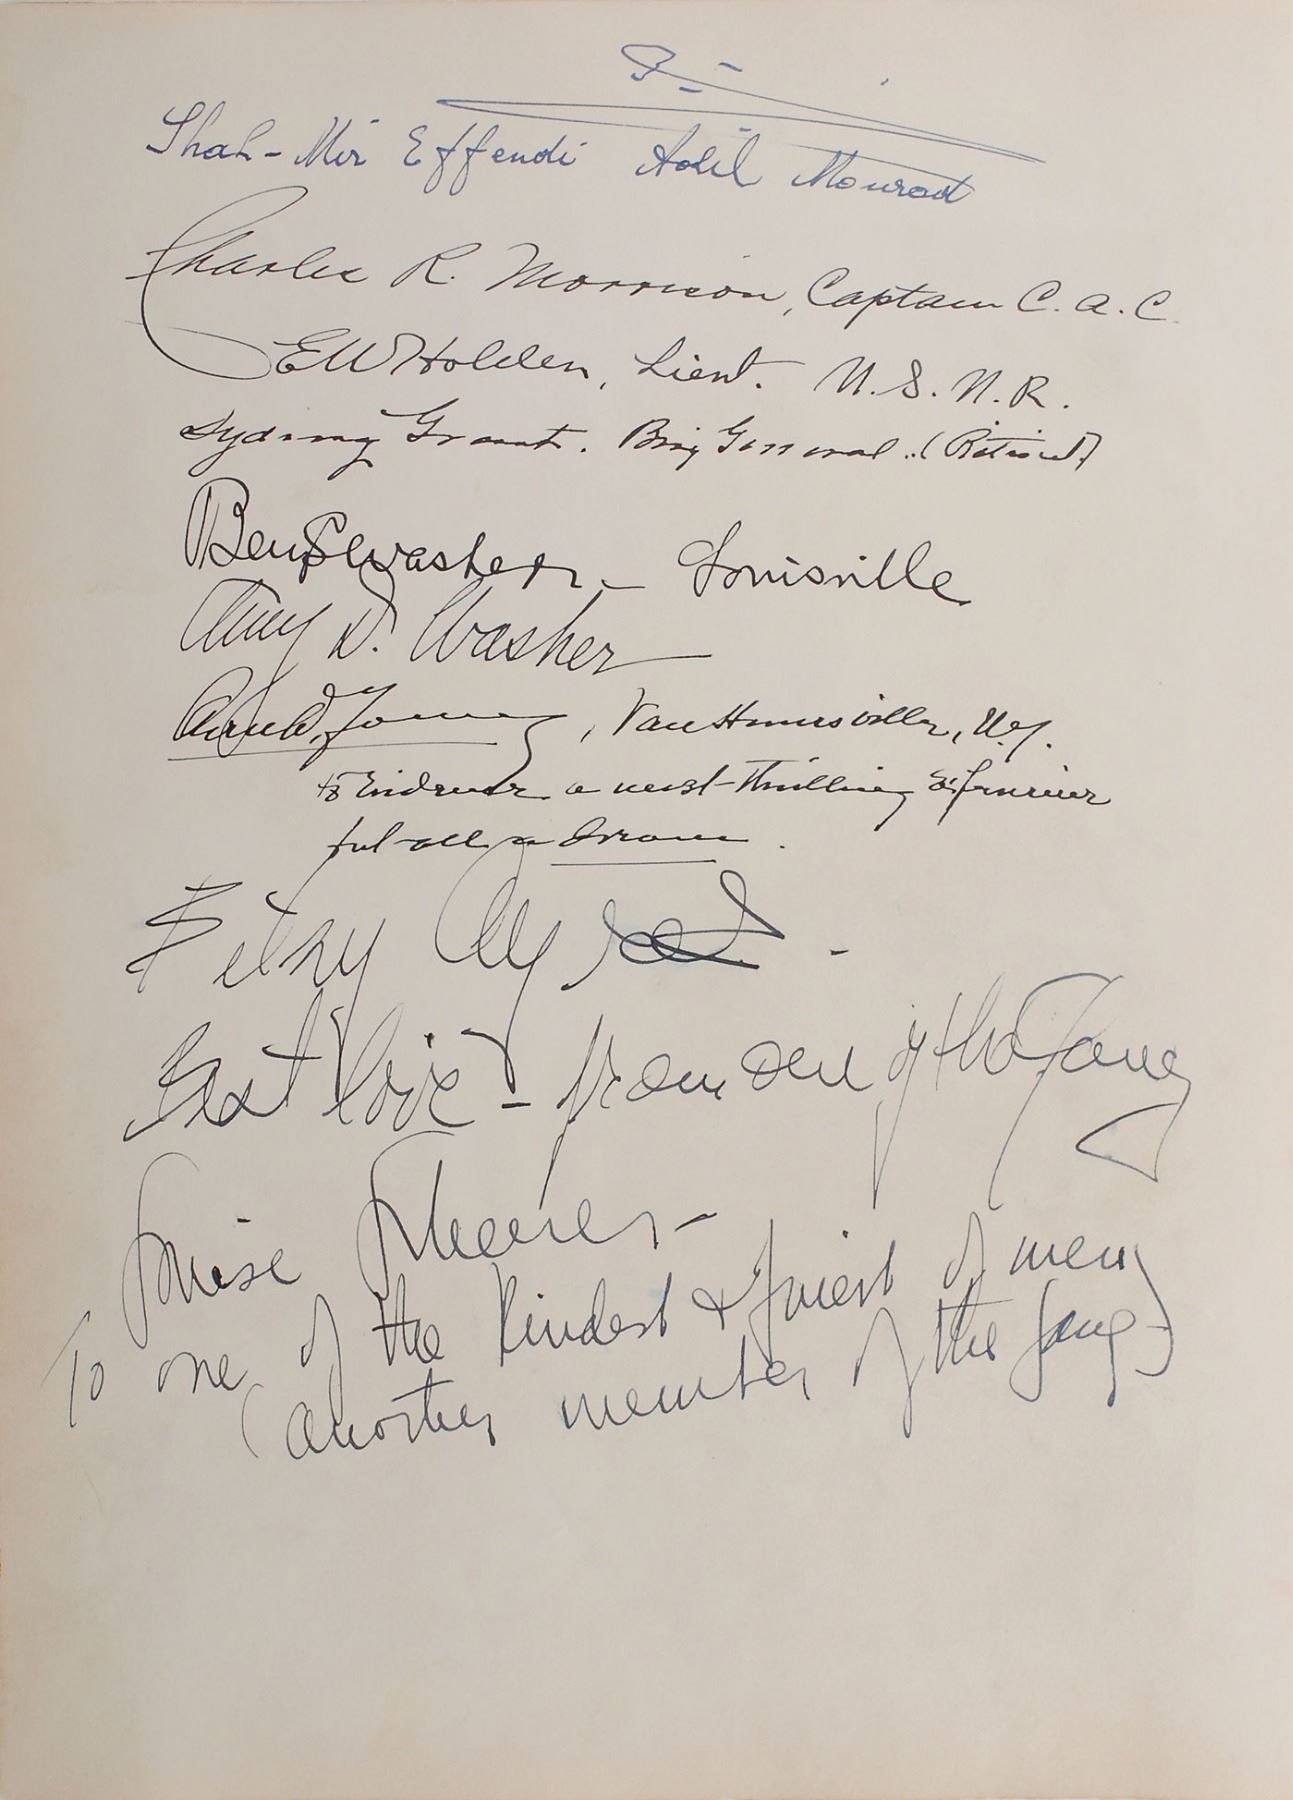 Shah-Mir Effendi Adil Mourad
Charles R. Morrison, Captain C.A.C.
EW Holden, Lieut. U.S.N.R.
Sydney Grant. Brig General..(Retired)
Ben S Washer - Louisville
Amy D. Washer
Owen D. Young, Van Hornesville, N.Y.
a most thrilling
all a
Betsy
Best love - from one of the Gang
Louise
To one of the kindest & finest of men
(another member of the gang-)